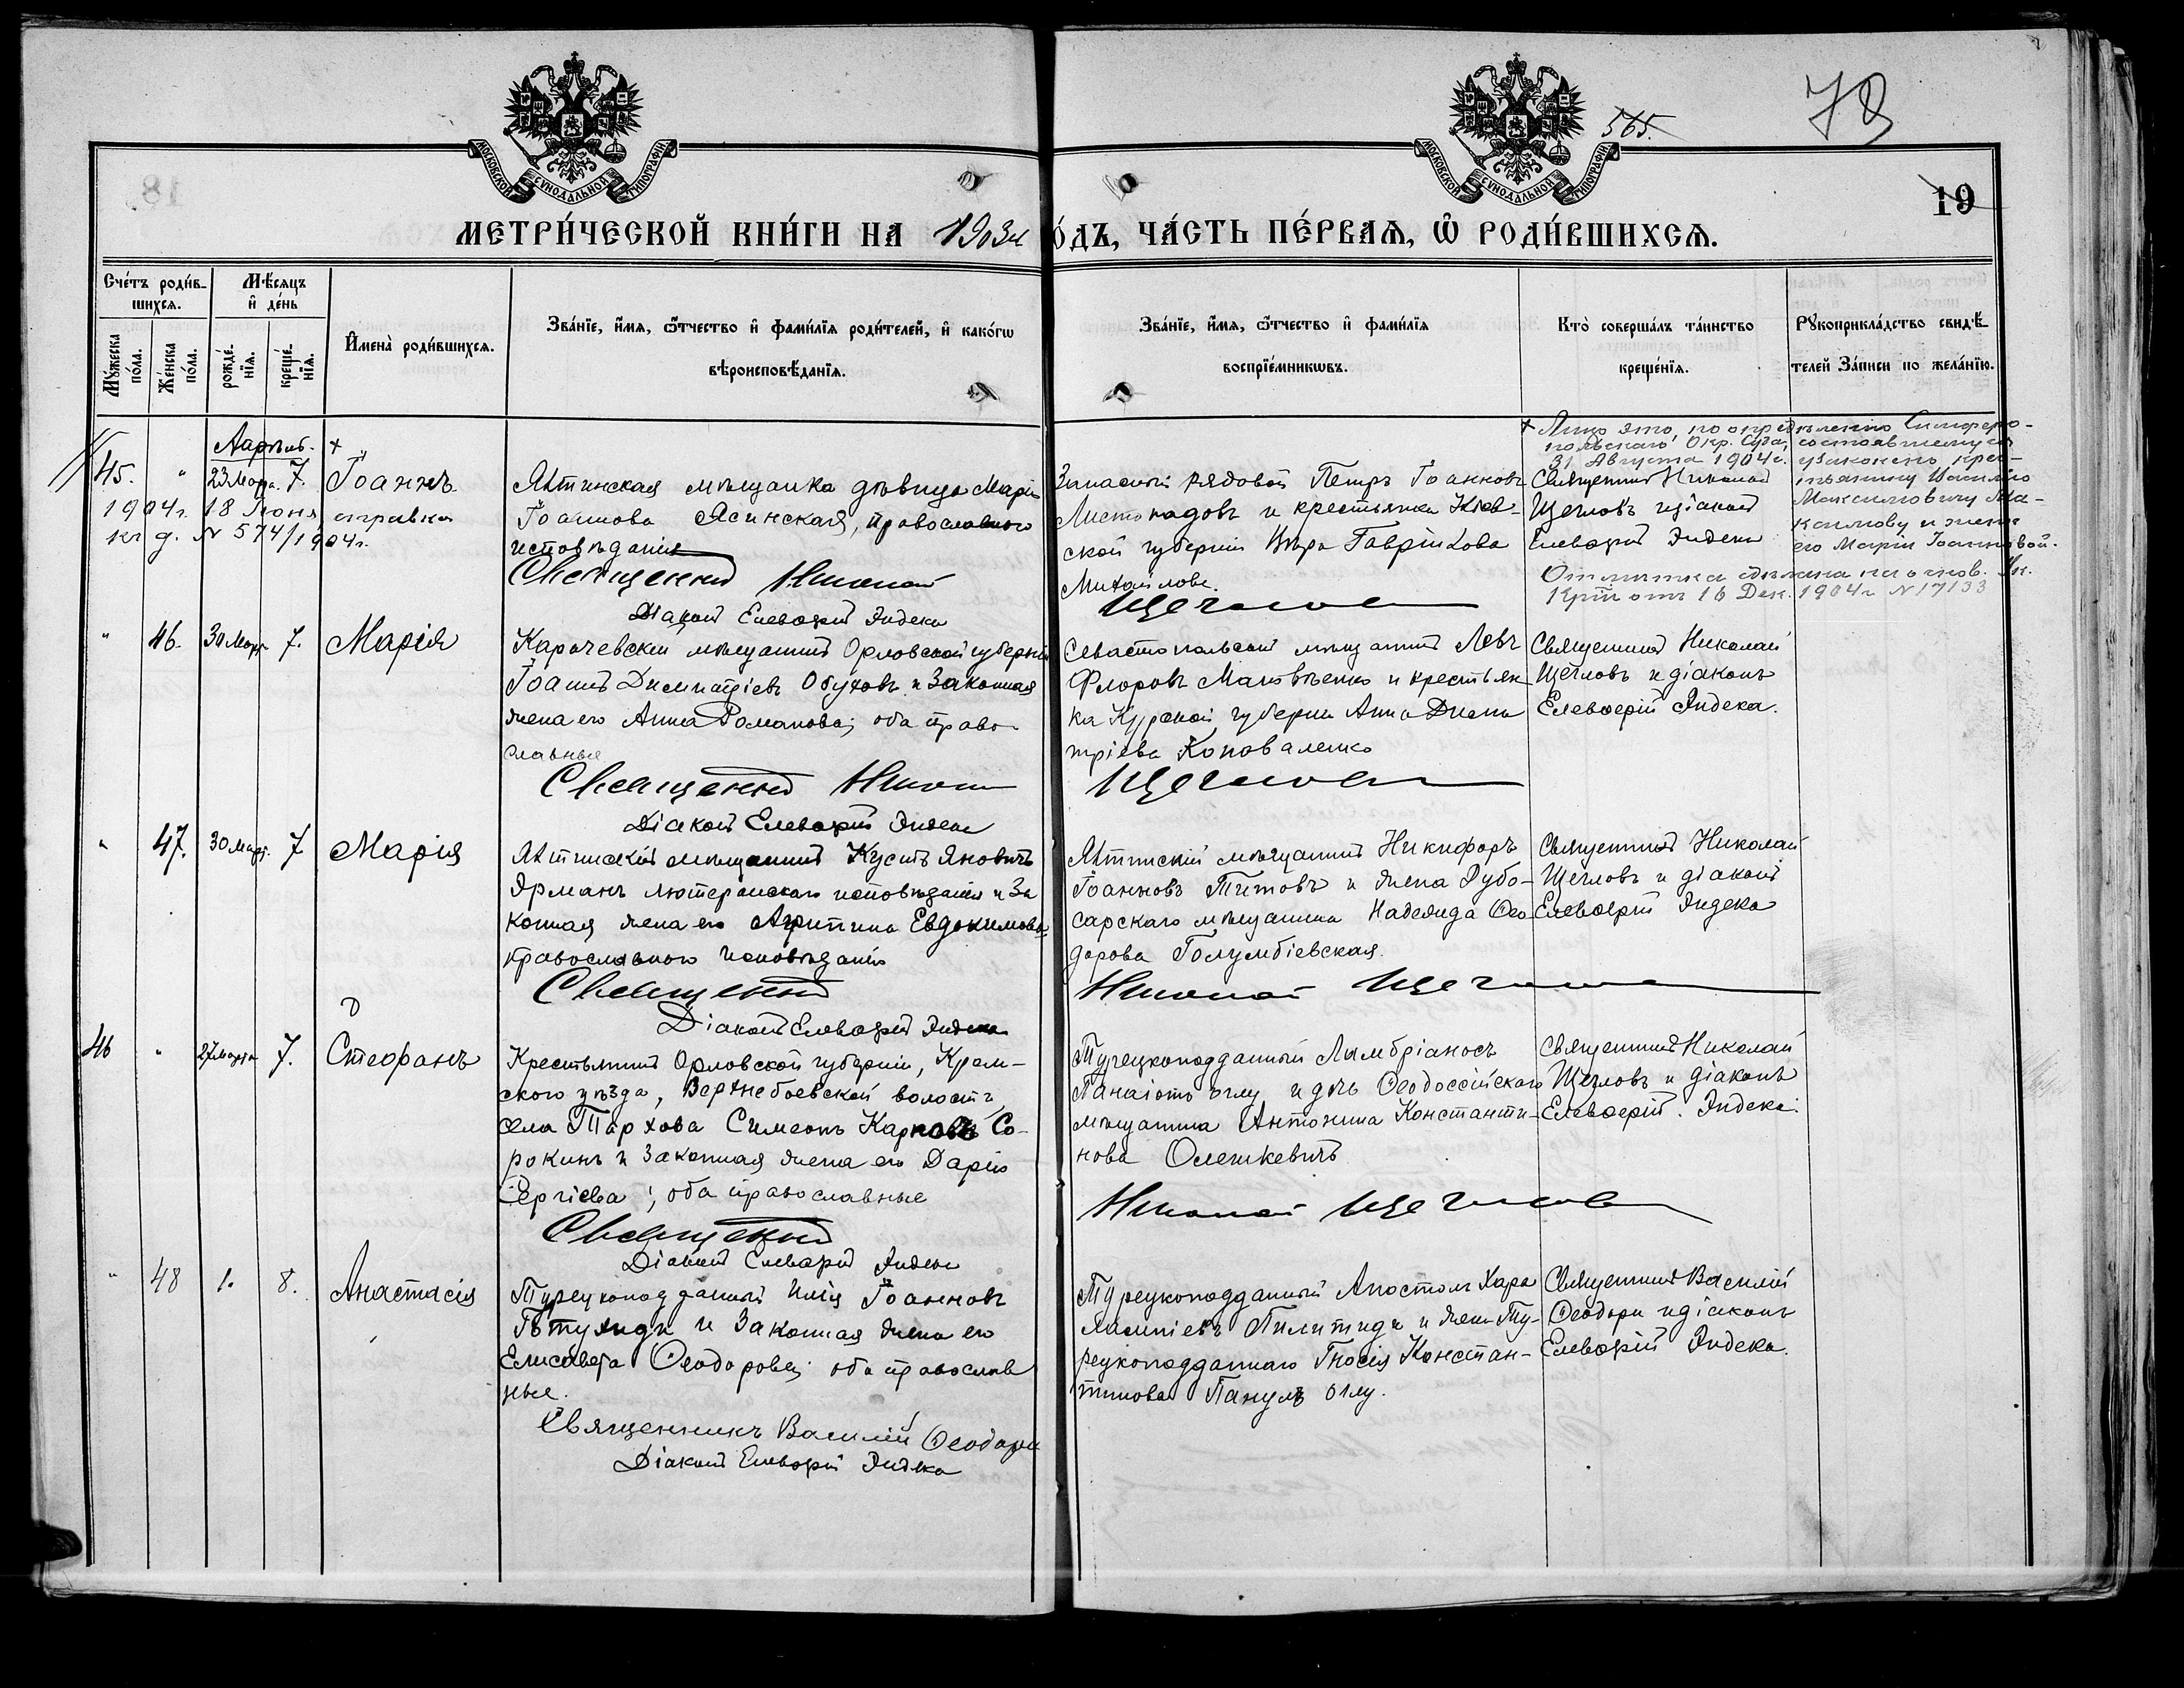 565.
79
18
19
МОСКОВСКОЙ СѴНОДАЛЬНОЙ ТИПОГРАФІИ
МОСКОВСКОЙ СѴНОДАЛЬНОЙ ТИПОГРАФІИ
МЕТРИ́ЧЕСКОЙ КНИ́ГИ НА 1903й
О́ДЪ, ЧА́СТЬ ПЕ́РВАѦ, Ѡ҆ РОДИ́ВШИХСѦ.
Сче́тъ роди́в-
шихсѧ.
Мѣ́сѧцъ
и҆ де́нь
Мꙋ́жеска
по́ла.
Же́нска
по́ла.
рожде́-
нїѧ.
креще́-
нїѧ.
И҆мена̀ роди́вшихсѧ.
Зва́нїе, и҆́мѧ, ѻ҆́тчество и҆ фами́лїѧ роди́телей, и҆ како́гѡ
вѣроисповѣ́данїѧ.
Зва́нїе, и҆́мѧ, ѻ҆́тчество и҆ фами́лїѧ
воспрїе́мникѡвъ.
Кто̀ соверша́лъ та́инство
креще́нїѧ.
Рꙋкоприкла́дство свидѣ́-
телей За́писи по жела́нїю.
Апрѣль.
45. " 23 Мар. 7. Іоаннъ
1904г. 18 Іюня справка
къ д. N 574/1904г.
Ялтинская мѣщанка дѣвица Марія
Іоаннова Ясинская, православнаго
исповѣданія
Священникъ Николай
Діаконъ Елевѳерій Индека
Запасный рядовой Петръ Іоанновъ
Листопадовъ и крестьянка Кіев-
ской губерніи Вѣра Гавріилова
Михайлова.
Щегловъ
Священникъ Николай
Щегловъ и діаконъ
Елевѳерій Индека
+ Лицо это, по опредѣленію Симферо-
польскаго Окр. Суда, состоявшемуся
31 Августа 1904г. узаконенъ крес-
тьянину Василію
Максимовичу
и женѣ
его Маріи Іоанновой.
Отмѣтка сдѣлана на основ. Ук.
отъ 16 Дек. 1904г N 17133
" 46. 30 Март. 7. Марія
Карачевскій мѣщанинъ Орловской губерніи
Іоаннъ Димитріевъ Обуховъ и законная
жена его Анна Романова; оба право-
славные
Священникъ Николай
Діаконъ Елевѳерій Индека
Севастопольскій мѣщанинъ Левъ
Флоровъ Матвѣенко и крестьян
ка Курской губерніи Анна Дими
тріева Коноваленко
Щегловъ
Священникъ Николай
Щегловъ и діаконъ
Елевѳерій Индека.
" 47. 30 Март. 7 Марія
Ялтинскій мѣщанинъ Яновичъ
Ярманъ лютеранскаго исповѣданія и за
конная жена его Агрипина Евдокимова
православнаго исповѣданія
Священникъ
Діаконъ Елевѳерій Индека
Ялтинскій мѣщанинъ Никифоръ
Іоанновъ Титовъ и жена Дубо-
сарскаго мѣщанина Надежда Ѳео
дорова Голумбіевская.
Николай Щегловъ
Священникъ Николай
Щегловъ и діаконъ
Елевѳерій Индека
46 " 27 Марта 7. Стефанъ
Крестьянинъ Орловской губерніи, Кром-
ского уѣзда, Верхнебоевской волости,
села Тархова Симеонъ Карповъ Со-
рокинъ и законная жена его Дарія
Сергіева; оба православные
Священникъ
Діаконъ Елевѳерій Индека
Турецкоподданный Лымбріаносъ
Панаіотъ оглу и дочь Ѳеодосійскаго
мѣщанина Антонина Константи-
нова Олешкевичъ
Николай Щегловъ
Священникъ Николай
Щегловъ и діаконъ
Елевѳерій Индека.
" 48 1. 8. Анастасія
Турецкоподданный Илія Іоанновъ
и законная жена его
Елисавета Ѳеодорова; оба православ
ные.
Священникъ Василій Ѳеодори
Діаконъ Елевѳерій Индека
Турецкоподданный Апостолъ Хара
лампіевъ Пилитиди и жена Ту-
рецкоподданнаго Констан-
тинова оглу.
Священникъ Василій
Ѳеодори и діаконъ
Елевѳерій Индека.